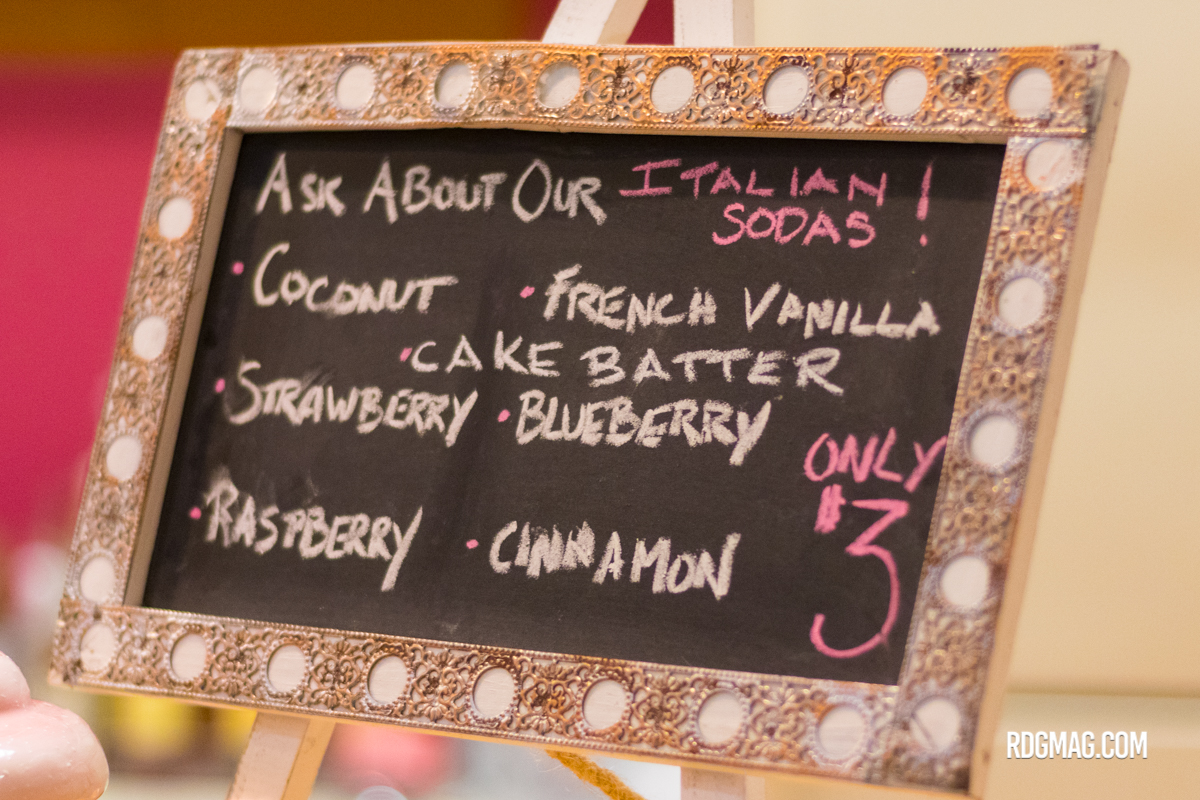 ASK ABOUT OUR ITALIAN SODAS!
• COCONUT • FRENCH VANILLA
• CAKE BATTER
• STRAWBERRY • BLUEBERRY
• RASPBERRY • CINNAMON
ONLY
$3
RDGMAG.COM